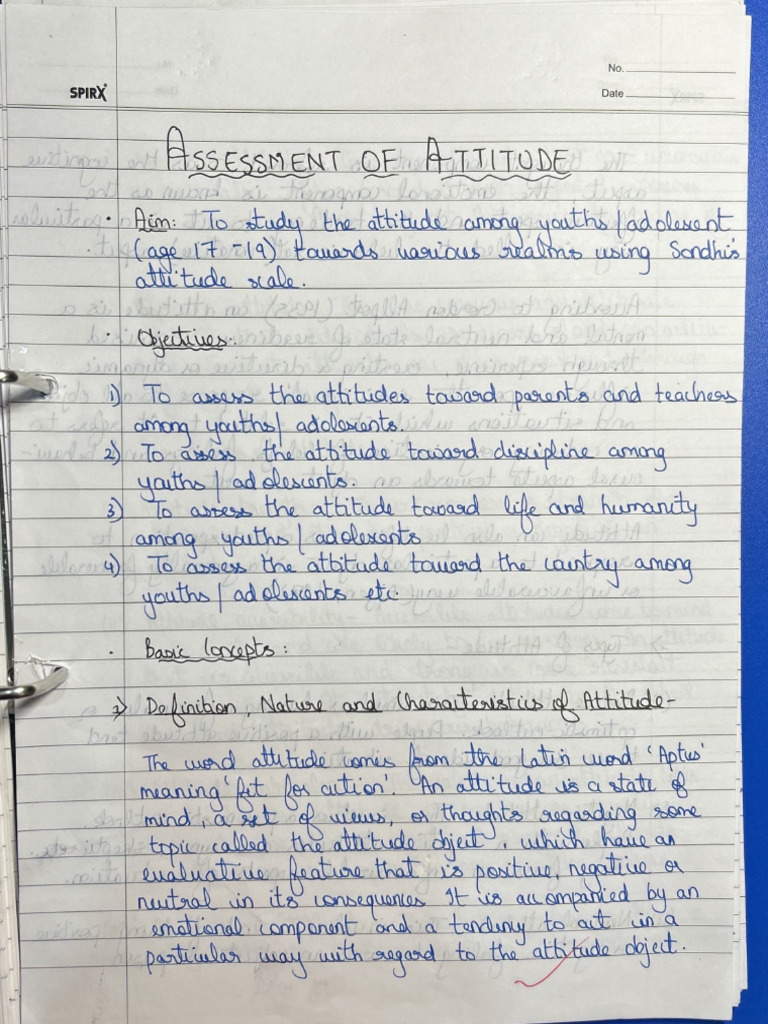 No.
SPIRX
Date
ASSESSMENT OF ATTITUDE
• Aim: To study the attitude among youths/adolesent
(age 17-19) towards various realms using Sondhi's
attitude scale.
• Objectives:
1) To assess the attitudes toward parents and teachers
among youths/ adolescents.
2) To assess the attitude toward discipline among
youths / adolescents.
3) To assess the attitude toward life and humanity
among youths / adolescents
4) To assess the attitude toward the country among
youths / adolescents etc.
• Basic Concepts:
1) Definition, Nature and Characteristics of Attitude-
The word attitude comes from the Latin word 'Aptus'
meaning 'fit for action'. An attitude is a state of
mind, a set of views, or thoughts regarding some
topic called the attitude object, which have an
evaluative feature that is positive, negative or
neutral in its consequences It is accompanied by an
emotional component and a tendency to act in a
particular way with regard to the attitude object.